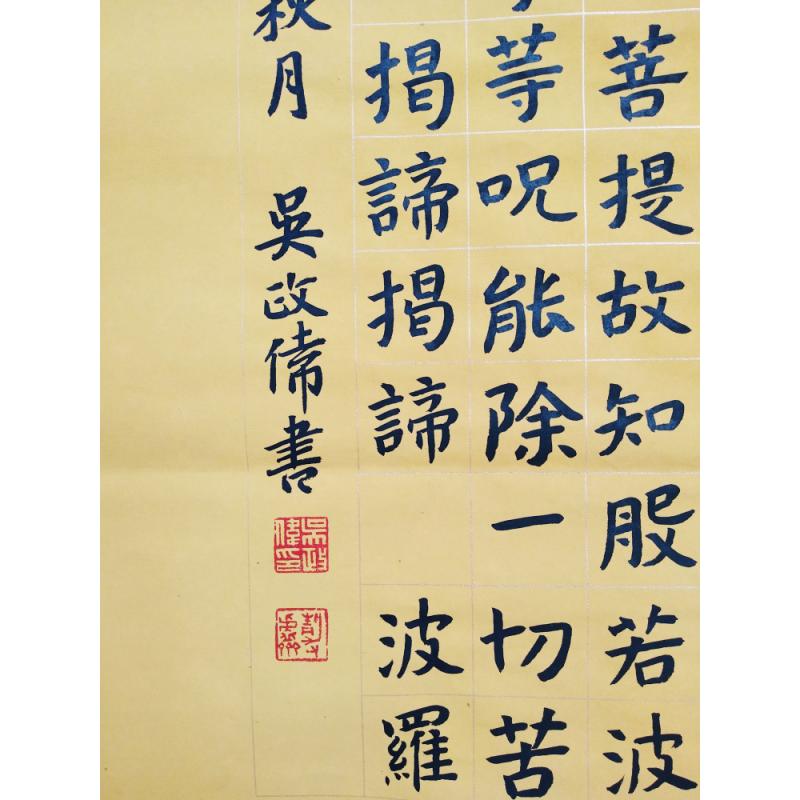 菩提故知般若波
等呪能除一切苦
揭諦揭諦 波羅
秋月 吳政偉書
吳政偉印